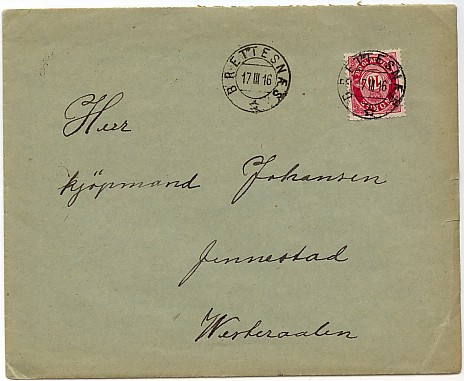 BRETTESNÆS
17 III 16
BRETTESNÆS
17 III 16
10
Herr
kjöpmand Johansen
Jennestad
Westeraalen